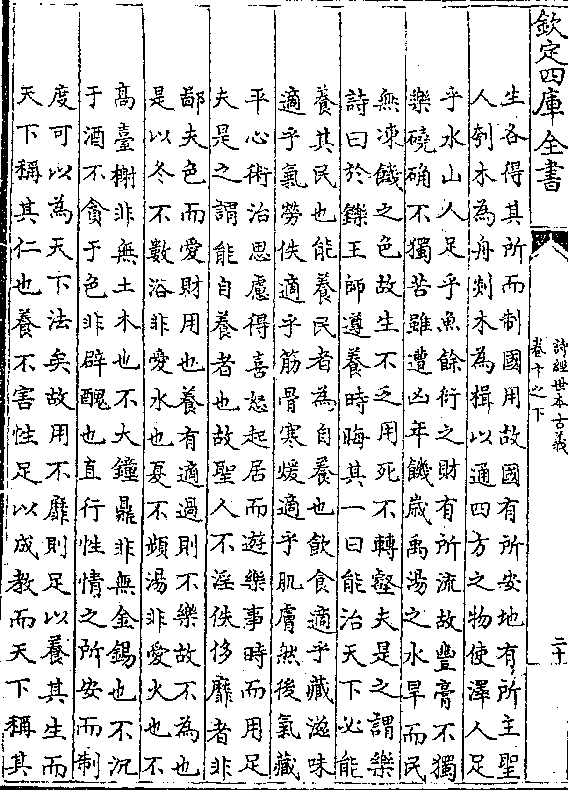 欽定四庫全書
詩經世本古義
卷十之下
二十
生各得其所而制國用故國有所安地有所主聖
人刳木為舟剡木為楫以通四方之物使澤人足
乎水山人足乎魚餘衍之財有所流故豐膏不獨
樂磽确不獨苦雖遭凶年饑歲禹湯之水旱而民
無凍餓之色故生不乏用死不轉壑夫是之謂樂
詩曰於鑠王師遵養時晦其一曰能治天下必能
養其民也能養民者為自養也飲食適乎藏滋味
適乎氣勞佚適乎筋骨寒煖適乎肌膚然後氣藏
平心術治思慮得喜怒起居而遊樂事時而用足
夫是之謂能自養者也故聖人不淫佚侈靡者非
鄙夫色而愛財用也養有適過則不樂故不為也
是以冬不數浴非愛水也夏不頻湯非愛火也不
高臺榭非無土木也不大鐘鼎非無金錫也不沉
于酒不貪于色非辟醜也直行性情之所安而制
度可以為天下法矣故用不靡則足以養其生而
天下稱其仁也養不害性足以成教而天下稱其